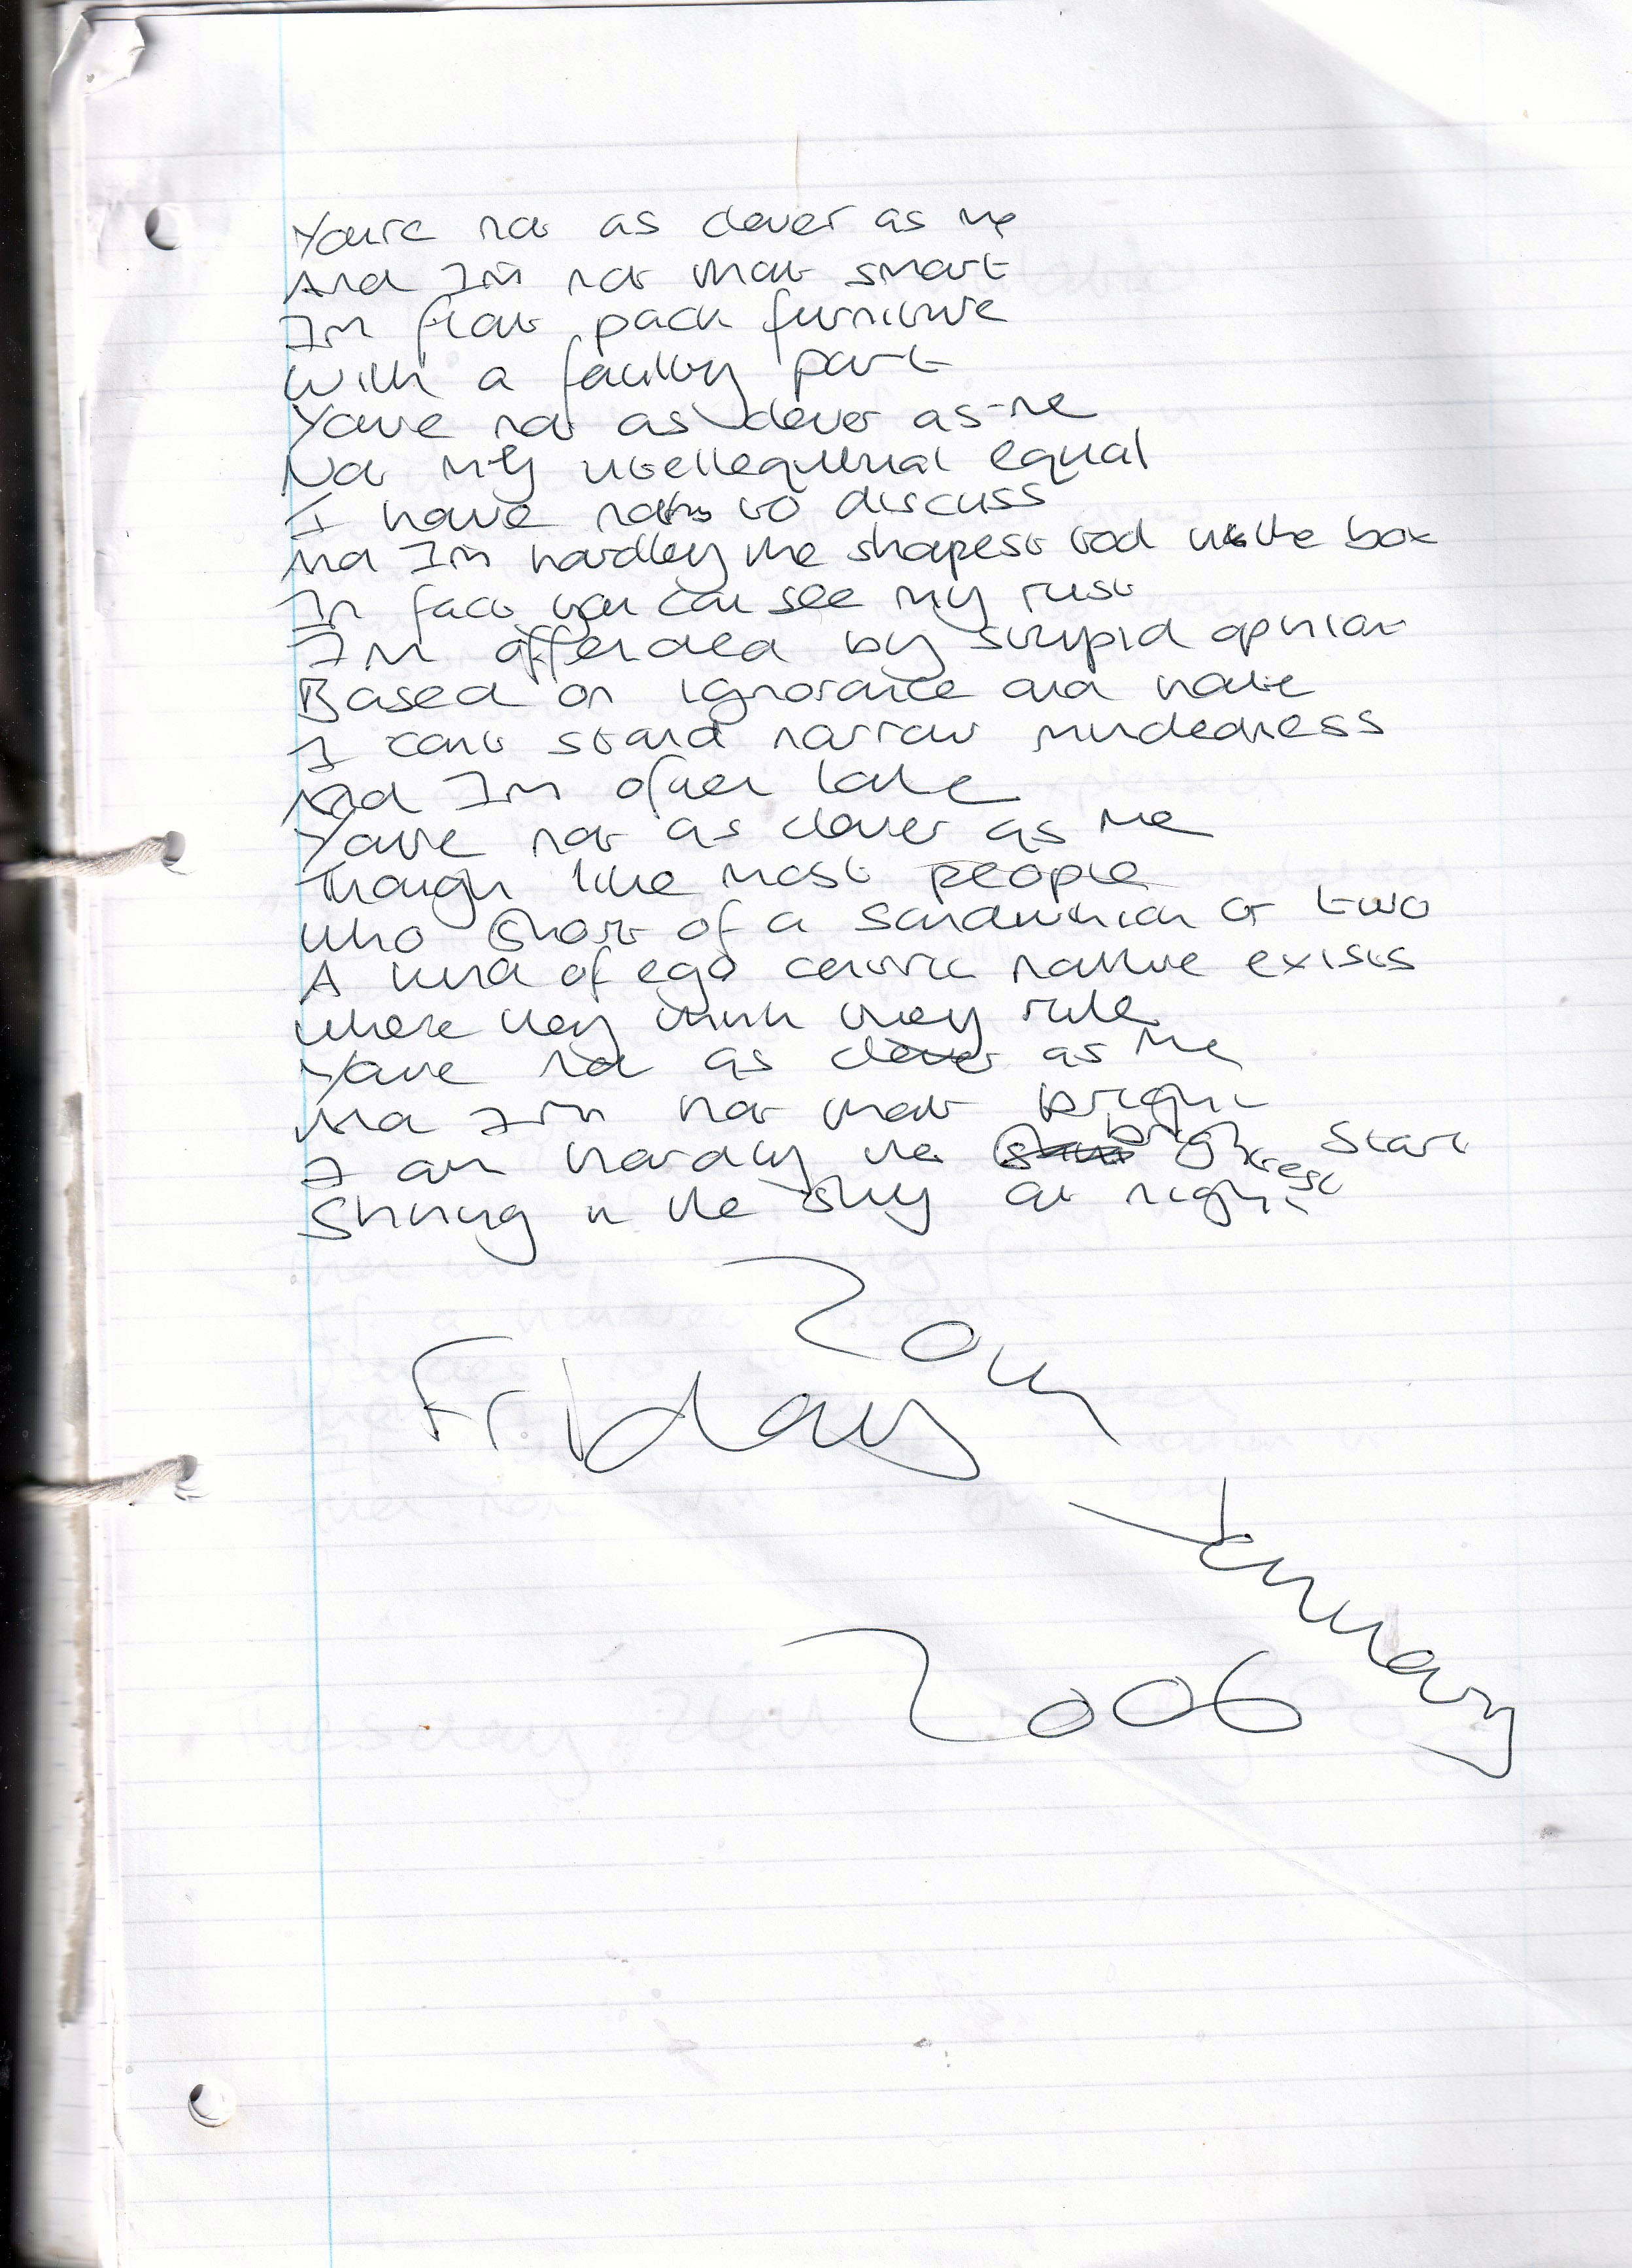 Youre not as clever as me
And Im not that smart
Im flat pack furniture
With a faulty part
Youre not as clever as me
Not my intellequtual equal
I have to discuss
And Im hardley the shapest tool in the box
In fact you can see my rust
Im offended by stupid opnion
Based on ignorance and hate
I cant stand narrow mindedness
And Im often late
Youre not as clever as me
Though like most people
Who short of a sandwhich or two
A kind of ego centric nature exists
Where they think they rule
Youre not as clever as me
And Im not that bright
I am hardly the brightest Start
Shining in the sky at night
Friday 20th January
2006